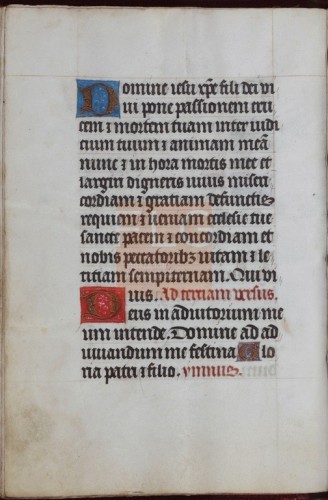 Domine iesu xpe fili dei vi
ui pone passionem cru
cem ⁊ mortem tuam inter iudi
cium tuum ⁊ animam meā
nunc ⁊ in hora mortis mee et
largiri digneris uiuis miseri
cordiam ⁊ gratiam defunctis
requiem ⁊ ueniam ecclesie tue
sancte pacem ⁊ concordiam et
nobis peccatoribꝫ uitam ⁊ le
titiam sempiternam. Qui vi
uis. Ad tertiam versus.
Deus in adiutorium me
um intende. Domine ad ad
iuuandum me festina Glo
ria patri ⁊ filio. ymnus.